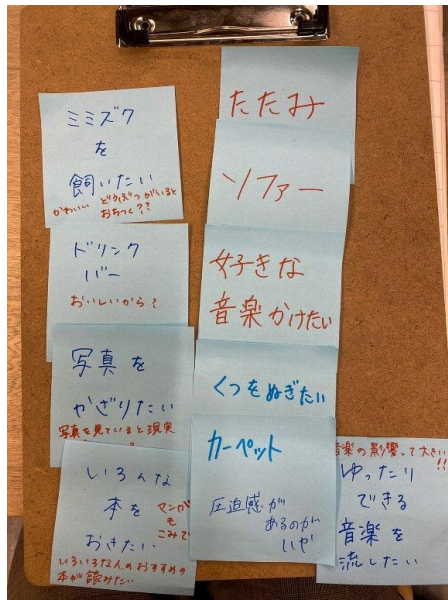 ミミズク
を
飼いたい
かわいい どうぶつがいると
おちつく??
ドリンク
バー
おいしいから?
写真を
かざりたい
写真を見ていると現実
いろんな
本を
おきたい
マンガ
も
こみで
いろいろな人のおすすめの
本が読みたい
たたみ
ソファー
好きな
音楽かけたい
くつをぬぎたい
カーペット
圧迫感が
あるのが
いや
音楽の影響って大きい
!!
ゆったり
できる
音楽を
流したい